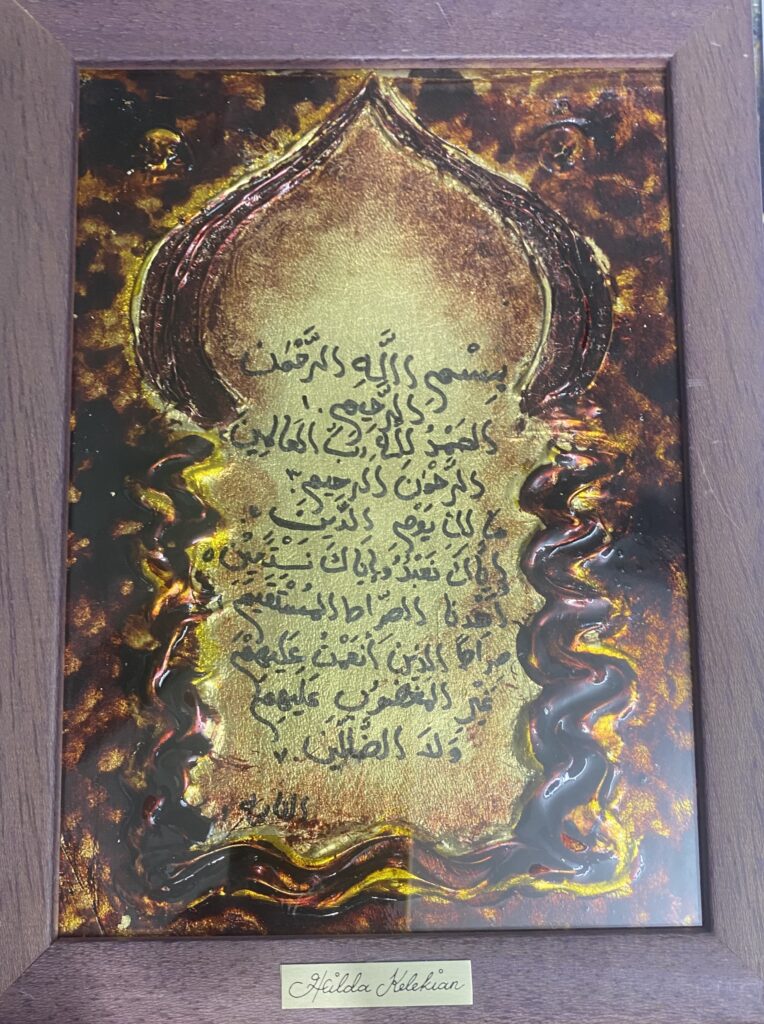 بِسْمِ اللَّهِ الرَّحْمَن
الرَّحِيمِ ١
الحَمْدُ للهِ رَبِّ العَالَمِينَ
الرَّحْمنِ الرحِيمِ ٣
مَالِكِ يَوْمِ الدِّينِ
إِيَّاكَ نَعْبُدُ وَإِيَاكَ نَسْتَعِينُ ٥
اهْدِنَا الصِّرَاطَ المُسْتَقِيمَ
صِرَاطَ الذِينَ أَنْعَمْتَ عَلَيْهِمْ
غَيْرِ المَغْضُوبِ عَلَيْهِمْ
وَلاَ الضَّالِّينَ ٧
Hilda Kelekian